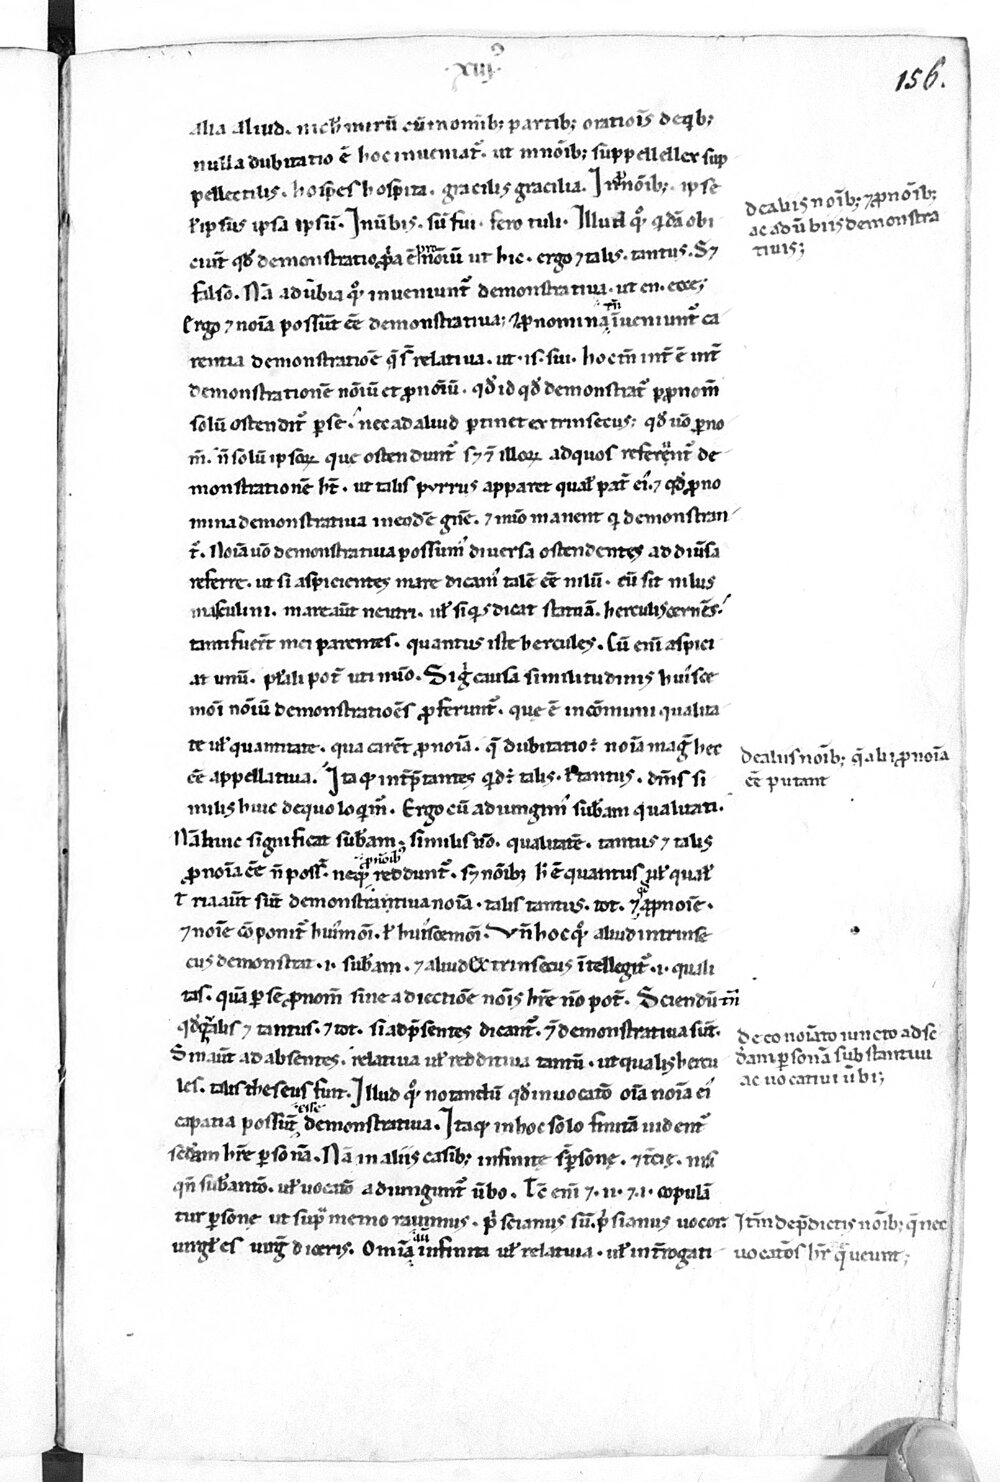 ·XIIJ·
156.
alia aliud. nichil mirū cū in nomīb; partib; orationis deqb;
nulla dubitatio ē hoc inueniat̄. ut in noīb; suppellellex sup
pellectilis. hospes hospita. gracilis gracilia. In pnoīb; ipse
ł ipsus ipsa ipsū. In ūbis. sū fui. fero tuli. Illud qq̊ qdā obi
ciunt qđ demonstratio ꝓpa ē pnoīū ut hic. ergo ⁊ talis. tantus. S⁊
falso. Nā adūbia qq̊ inueniunt̄ demonstratiua. ut en. ecce;
Ergo ⁊ noīa possūt eē demonstratiua; ⁊ ꝓnomina tm̄ īueniunt̄ ca
rentia demonstratiōe q̄ s̄ relatiua. ut. is. sui. hoc tm̄ int̄ ē int̄
demonstrationē noīū et ꝓnoīū. qđ id qđ demonstrat̄ p ꝓnom̄
solū ostendit̄ p se. nec ad aliud ptinet extrinsecus; qđ ūo ꝓno
m̄. n̄ solū ipsoꝝ que ostendunt̄ s⁊ ⁊ illoꝝ ad quos referunt̄ de
monstrationē ht̄. ut talis pyrrus apparet qual pat̄ eī. ⁊ qđ ꝓno
mina demonstratiua in eodē gn̄e. ⁊ nūo manent q demonstran
t̄. Noīa ūo demonstratiua possum diuersa ostendentes ad diūsa
referre. ut si aspicientes mare dicam̄ talē eē nilū. cū sit nilus
masculini. mare aūt neutri. uł siqs dicat statuā. herculis cernēs.
tanti fuerit mei parentes. quantus iste hercules. Cū enī aspici
at unū. plali pot̄ uti nūo. Sig̊ causa similitudinis huisce
moī noīū demonstratioēs ꝓferunt̄. que ē in cōmuni qualita
te uł quantitate. qua carēt ꝓnoīa. q̄ dubitatio: noīa mag hec
eē appellatiua. Itaq intp̄tantes qd: talis. ł tantus. dm̄s si
milis huic de quo loqim̄. Ergo cū adiungim̄ subam qualitati.
Nā huic significat subam; similis ūo. qualitatē. tantus ⁊ talis
ꝓnoīa eē n̄ poss. neq ꝓnoīb reddunt̄. s⁊ noīb; h ē quantus ł qual
Tria aūt sūt demonstrantiua noīa. talis tantus. tot. ⁊ a ꝓnoīe.
⁊ noīe cōponit̄ huimoī. ł huiscemoī. Vn̄ hoc qq̊ aliud intrinse
cus demonstrat. i. subam. ⁊ aliud extrinsecus ītellegit̄. i. quali
tas. quā p se ꝓnom̄ sine adiectiōe noīs hr̄e nō pot̄. Sciendū tm̄
qđ talis ⁊ tantus. ⁊ tot. si adp̄sentes dicant̄. ⁊ demonstratiua sūt.
Sin aūt ad absentes. relatiua uł redditiua tantū. ut qualis hercu
les. talis theseus fuit. Illud qq̊ notandū qđ in uocatō oīa noīa eī
capatia possūt esse demonstratiua. Itaq in hoc solo finitā uident̄
sedam hr̄e psonā. Nā in aliis casib; infinite s̄ psone. ⁊ tcię. nisi
qn̄ subantō. uł uocatō adiungunt̄ ūbo. Tē enī ⁊. II. ⁊. I. copulā
tur psone ut supͣ memorauimus. p̄scianus sū. p̄sianus uocor.
uirgiles uirg diceris. Omia aū infinita uł relatiua. uł int̄rogati
de aliis noīb; ⁊ ꝓnoīb;
ac adūbiis demonstra
tiuis;
de aliis noīb; q̄ alii ꝓnoīa
eē putant
de eo noīato iuncto ad se
dam psonā substantiui
ac uocatiui ūbi;
Itm̄ de p̄dictis noīb; q̄ nec
uocatōs hr̄ queunt;